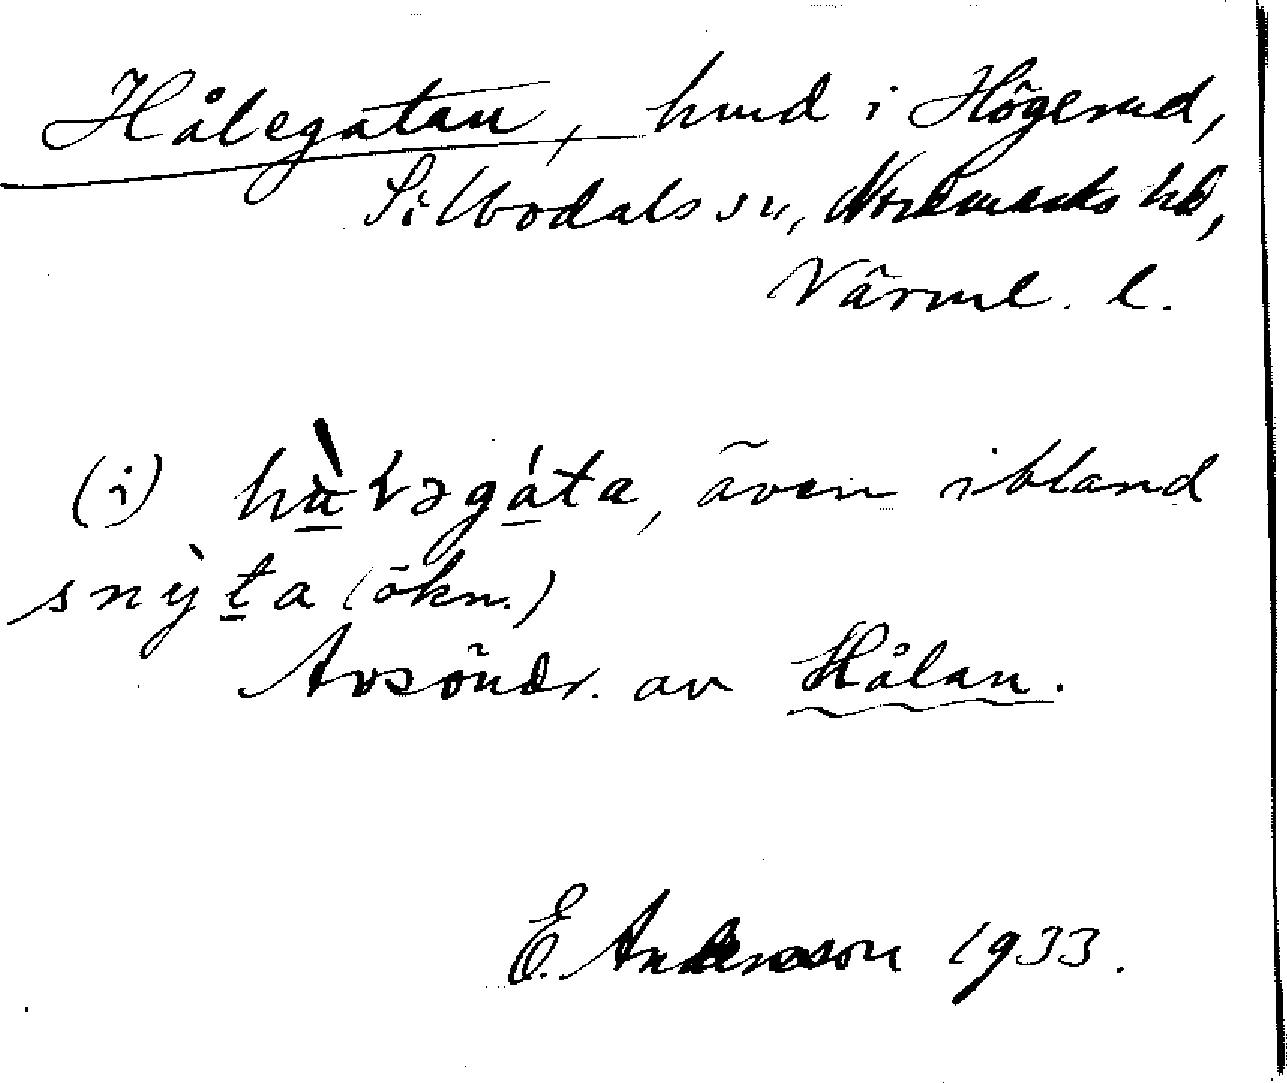 Hålegatan, hmd i Högerud,
Silbodals sn, Nordmarks hd,
Värml. l.
(i) hàləgáta, även ibland
snỳta (ökn.)
Avsöndr. av Hålan.
E. Andersson 1933.